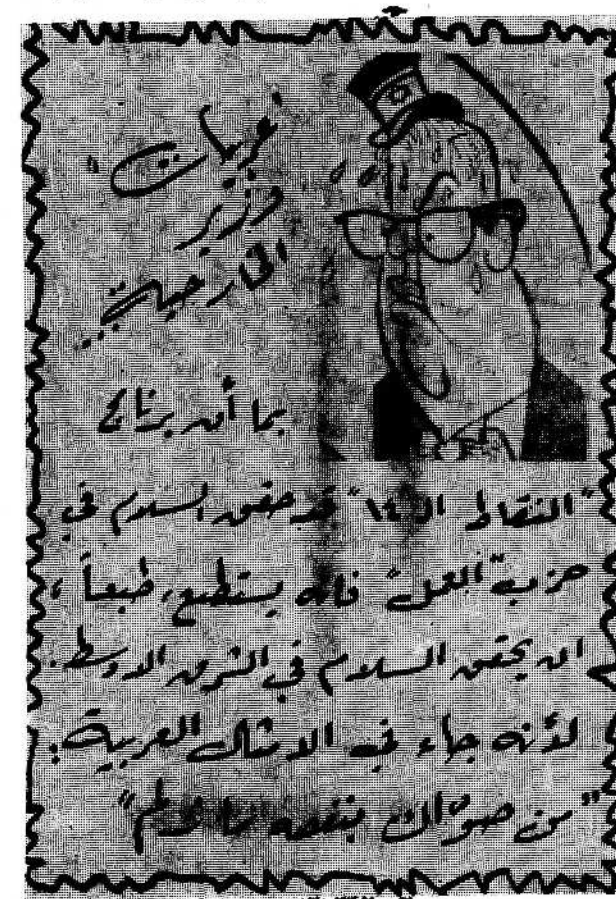 "غربيات"
وزير
الخارجية..
بما أن برنامج
"النقاط الـ ١٤" قد حقق السلام في
حزب "العمل" فانه يستطيع، طبعاً،
ان يحقق السلام في الشرق الاوسط.
لأنه جاء في الامثال العربية:
"من